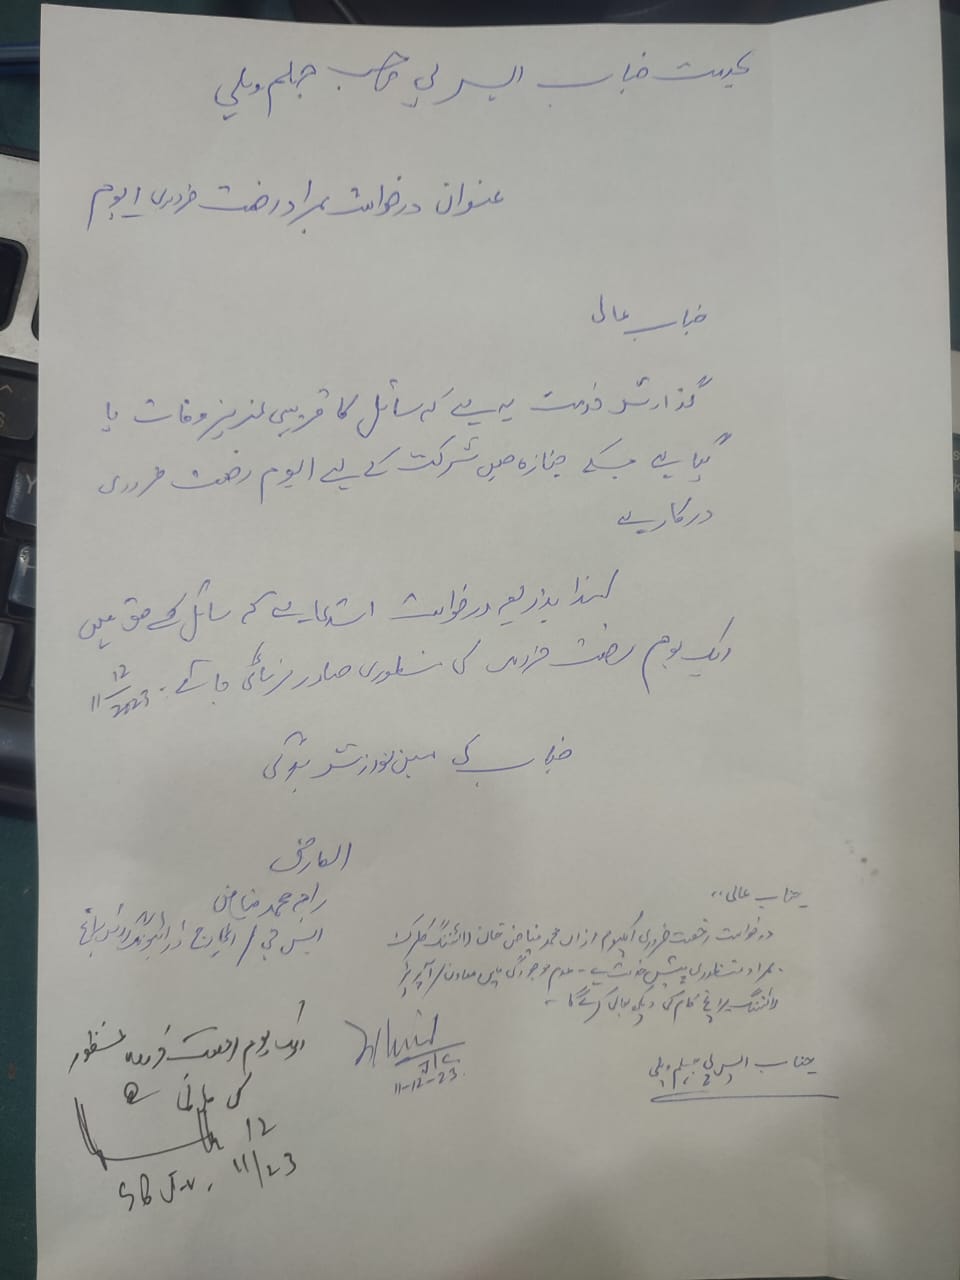 بخدمت جناب ایس پی صاحب جہلم ویلی
عنوان درخواست بمراد رخصت ضروری ایوم
جناب عالی
گذارش خدمت یہ ہے کہ سائل کا قریبی عزیز وفات پا
گیا ہے جسکے جنازہ میں شرکت کے لیے ایوم رخصت ضروری
درکار ہے
لہذا بذریعہ درخواست استدعا ہے کہ سائل کے حق میں
ایک یوم رخصت ضروری کی منظوری صادر فرمائی جائے۔ 11/12/2023
جناب کی عین نوازش ہوگی
العارض
راجہ محمد فیاض
ایس جی / انچارج ڈرائیونگ لائسنس برانچ
جناب عالی،،
درخواست رخصت ضروری ایکیوم ازاں محمد فیاض خان لائسنسنگ کلرک
بمراد منظوری پیش خدمت ہے۔ عدم موجودگی میں معاون / آپریٹر
لائسنسنگ برانچ کام کی دیکھ بھال کرے گا۔
جناب ایس پی جہلم ویلی
11-12-23
ایک یوم رخصت ضروری منظور
کی جاتی ہے
12
11/23